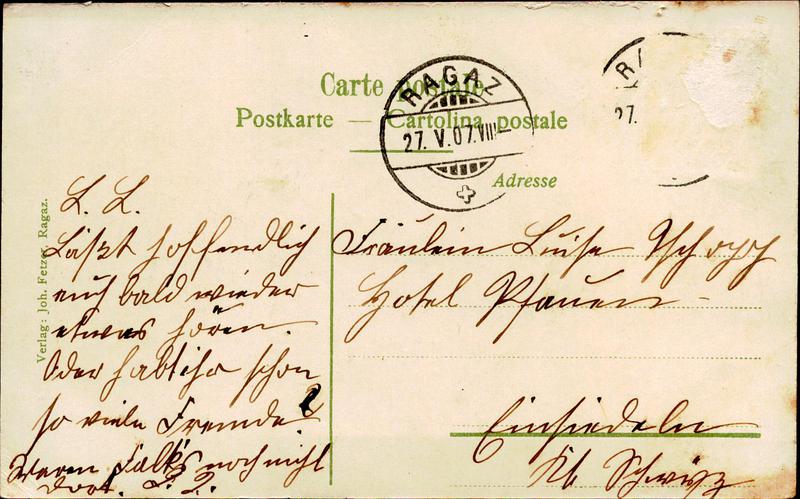 Carte postale
Postkarte — Cartolina postale
RAGAZ
27. V. 07. VIII —
RA
27.
Adresse
Verlag: Joh. Fetzer, Ragaz.
L. L.
Läßt hoffendlich
auch bald wieder
etwas hören.
Oder habt ihr schon
so viele Fremde?
Waren Falk's noch nicht
dort. L. L.
Fräulein Luise Tschopp
Hotel Pfauen -
Einsiedeln
Kt. Schwyz